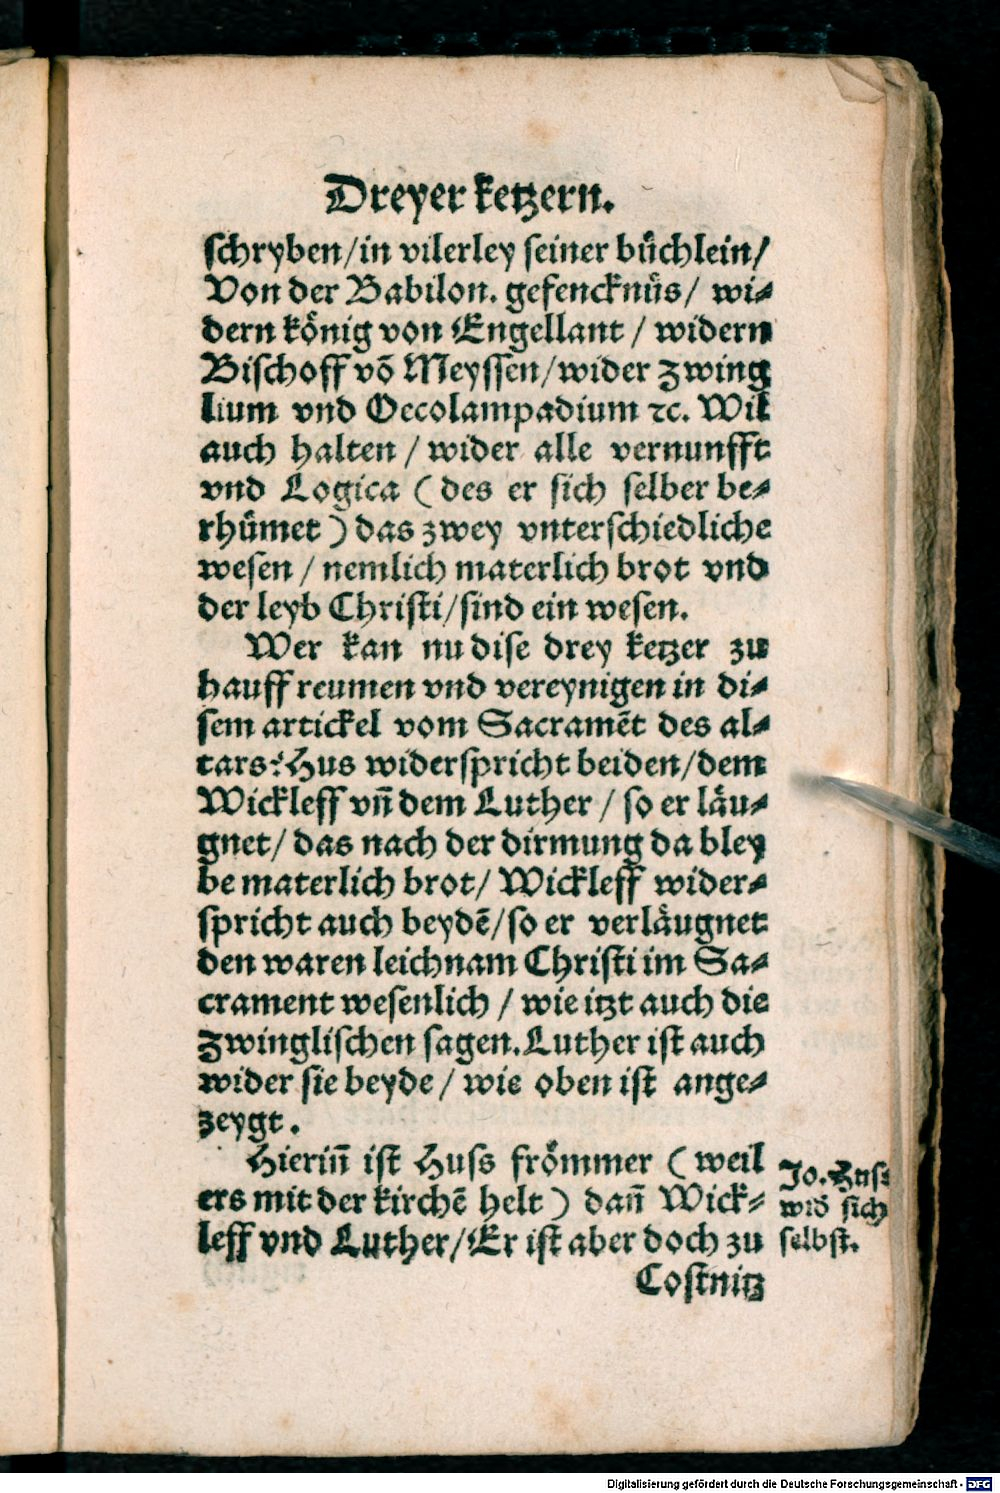 Dreyer ketzern.
schryben/in vilerley seiner buͤchlein/
Von der Babilon. gefencknuͤs/ wi⸗
dern koͤnig von Engellant / widern
Bischoff võ Meyssen/wider Zwing
lium vnd Oecolampadium ꝛc. Wil
auch halten / wider alle vernunfft
vnd Logica ( des er sich selber be⸗
rhuͤmet ) das zwey vnterschiedliche
wesen / nemlich materlich brot vnd
der leyb Christi/sind ein wesen.
Wer kan nu dise drey ketzer zu
hauff reumen vnd vereynigen in di⸗
sem artickel vom Sacramẽt des al⸗
tars? Hus widerspricht beiden/dem
Wickleff vñ dem Luther / so er laͤu⸗
gnet/ das nach der dirmung da bley
be materlich brot/ Wickleff wider⸗
spricht auch beydẽ/so er verlaͤugnet
den waren leichnam Christi im Sa⸗
crament wesenlich / wie itzt auch die
Zwinglischen sagen. Luther ist auch
wider sie beyde / wie oben ist ange⸗
zeygt.
Hieriñ ist Huss froͤmmer ( weil
ers mit der kirchẽ helt ) dañ Wick⸗
leff vnd Luther/Er ist aber doch zu
Jo. Hus
wid sich
selbst.
Costnitz
Digitalisierung gefördert durch die Deutsche Forschungsgemeinschaft - DFG